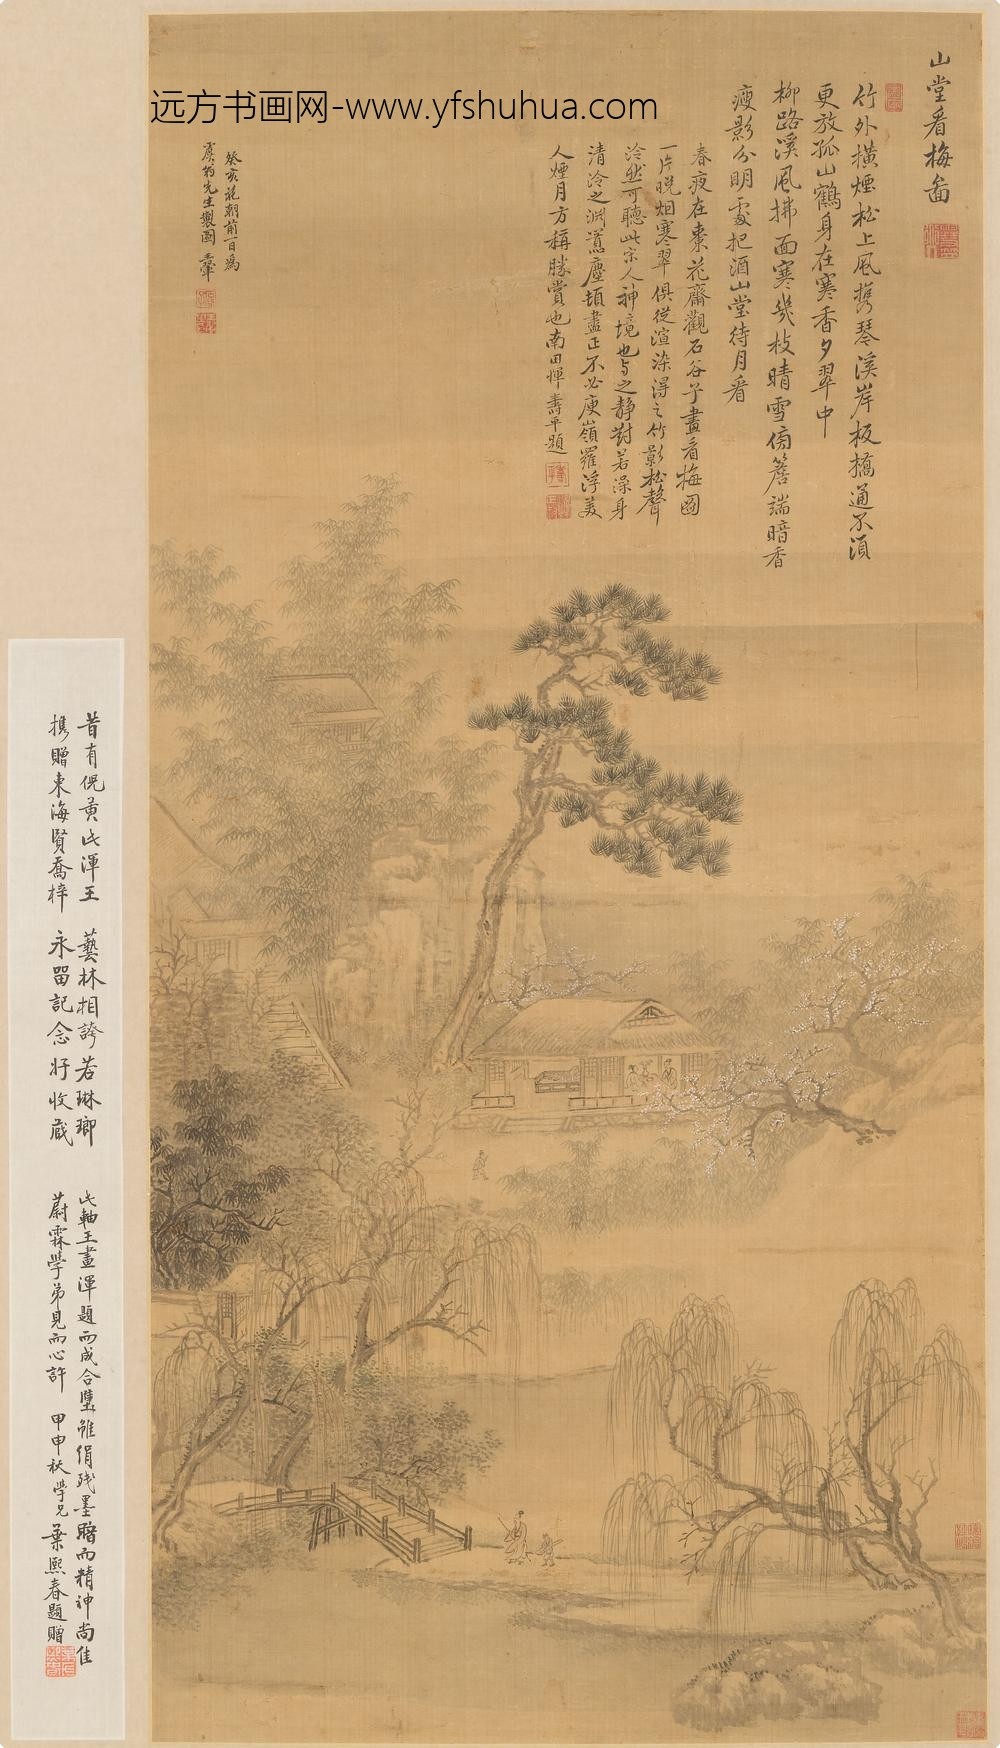 远方书画网-www.yfshuhua.com
山堂看梅啚
竹外横煙松上風携琴溪岸板橋通不湏
更放孤山鶴身在寒香夕翠中
柳路溪風拂面寒幾枝晴雪傍簷端暗香
瘦影分明處把酒山堂待月看
春夜在棗花齋觀石谷子畫看梅圖
一片晚烟寒翠俱從渲染得之竹影松聲
泠然可聽此宋人神境也与之静對若澡身
清泠之淵濁塵頓盡正不必庾嶺羅浮美
人煙月方稱勝賞也南田惲壽平題
癸亥花朝前一日為
虞 先生製圖 王翬
昔有倪黄此渾王 藝林相誇若琳瑯
携贈東海賢喬梓 永留記念好收藏
此軸王畫渾題而成合璧雖絹殘墨黯而精神尚佳
蔚霖學弟見而心許 甲申秋學兄葉熙春題贈